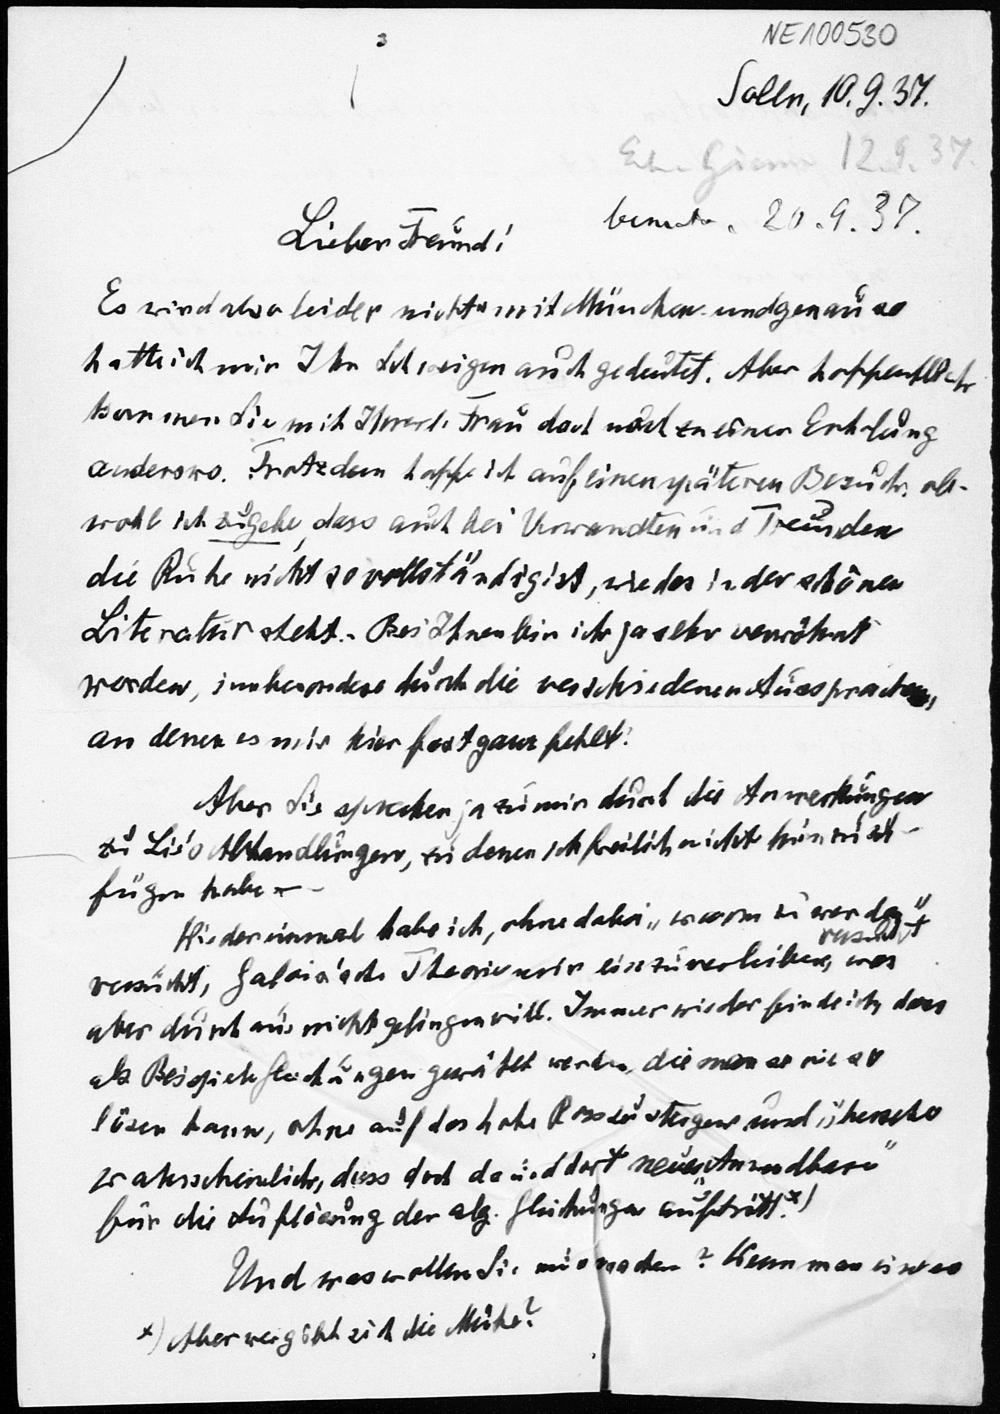 3
NE100530
Solln, 10.9.37.
12.9.37.
20.9.37.
Lieber Freund!
Es wird also leider nichts mit München und genau so
hatte ich mir Ihr Schweigen auch gedeutet. Aber hoffentlich
kommen Sie mit Ihrer Frau doch noch zu einer Erholung
anderswo. Trotzdem hoffe ich auf einen späteren Besuch, ob-
wohl ich zugebe, dass auch bei Verwandten und Freunden
die Ruhe nicht so vollständig ist, wie das in der schönen
Literatur steht. Bei Ihnen bin ich ja sehr verwöhnt
worden, insbesondere durch die verschiedenen Aussprachen,
an denen es mir hier fast ganz fehlt.
Aber Sie sprechen ja zu mir durch die Anmerkungen
zu Lie's Abhandlungen, zu denen ich freilich nichts hinzuzu-
fügen habe.
Wieder einmal habe ich, ohne dabei „warm zu werden"
versucht, Galois'sche Theorie mir einzuverleiben, was
aber durchaus nicht gelingen will. Immer wieder finde ich, dass
als Beispiele Gleichungen gewählt werden, die man so wie so
lösen kann, ohne auf das hohe Ross zu steigen und übersehe
wahrscheinlich, dass doch da und dort neues „Anwendbare"
für die Auflösung der alg. Gleichungen auftritt. x)
Und was wollen Sie machen? Wenn man
x) Aber verlohnt sich die Mühe?